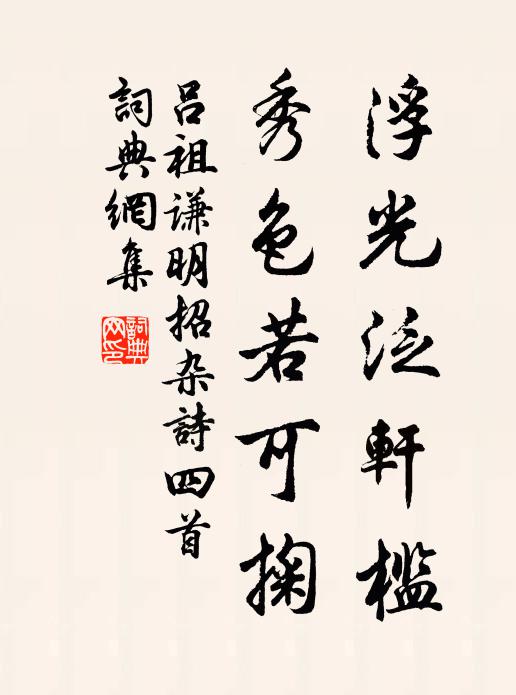 浮光泛軒檻
秀色若可掬
吕祖谦明招杂詩四首
詞典網集
詞典网印